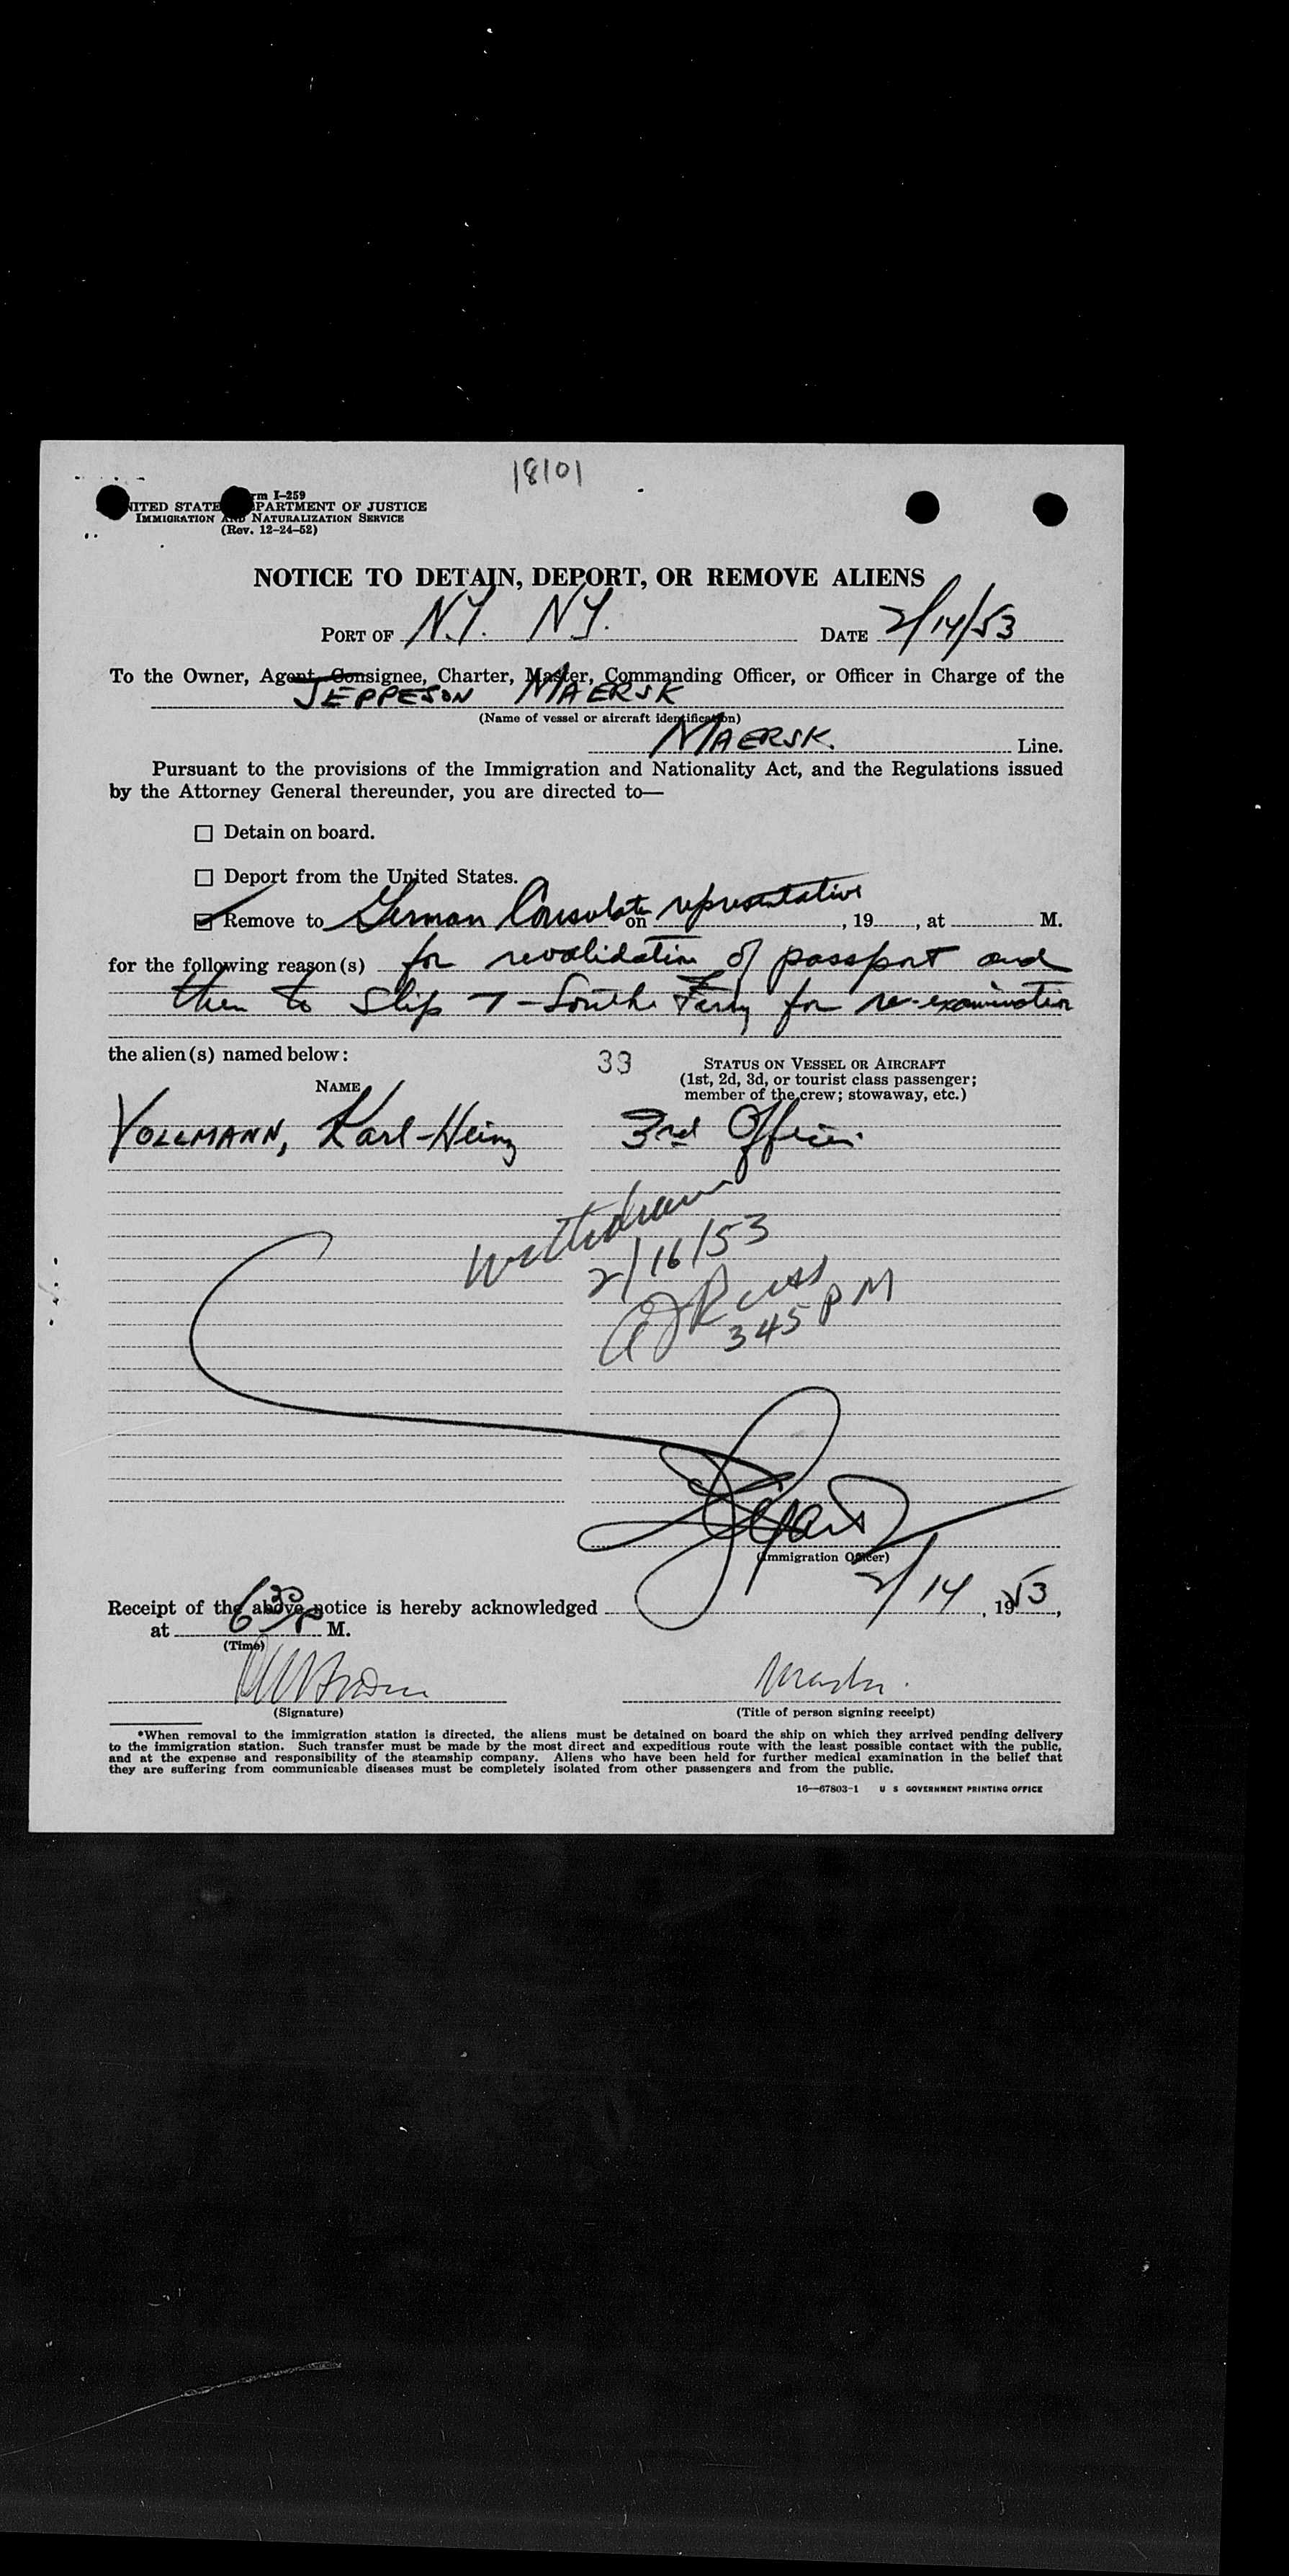 18101
rm I-259
NITED STATE PARTMENT OF JUSTICE
IMMIGRATION AND NATURALIZATION SERVICE
(Rev. 12-24-52)
NOTICE TO DETAIN, DEPORT, OR REMOVE ALIENS
PORT OF N.Y. NY. DATE 2/14/53
To the Owner, Agent, Consignee, Charter, Master, Commanding Officer, or Officer in Charge of the
JEPPESON MAERSK
(Name of vessel or aircraft identification)
MAERSK. Line.
Pursuant to the provisions of the Immigration and Nationality Act, and the Regulations issued
by the Attorney General thereunder, you are directed to—
☐ Detain on board.
☐ Deport from the United States.
☑ Remove to German Consulate on representative, 19, at M.
for the following reason(s) for revalidation of passport and
then to Slip 7 - South Ferry for re-examination
the alien(s) named below:
33
STATUS ON VESSEL OR AIRCRAFT
(1st, 2d, 3d, or tourist class passenger;
member of the crew; stowaway, etc.)
NAME
VOLLMANN, Karl-Heinz 3rd Officer
Withdrawn
2/16/53
345 PM
(Immigration Officer)
Receipt of the above notice is hereby acknowledged 2/14, 1953,
at 6 30 P M.
(Time)
Master.
(Signature) (Title of person signing receipt)
*When removal to the immigration station is directed, the aliens must be detained on board the ship on which they arrived pending delivery
to the immigration station. Such transfer must be made by the most direct and expeditious route with the least possible contact with the public,
and at the expense and responsibility of the steamship company. Aliens who have been held for further medical examination in the belief that
they are suffering from communicable diseases must be completely isolated from other passengers and from the public.
16—67803-1 U S GOVERNMENT PRINTING OFFICE